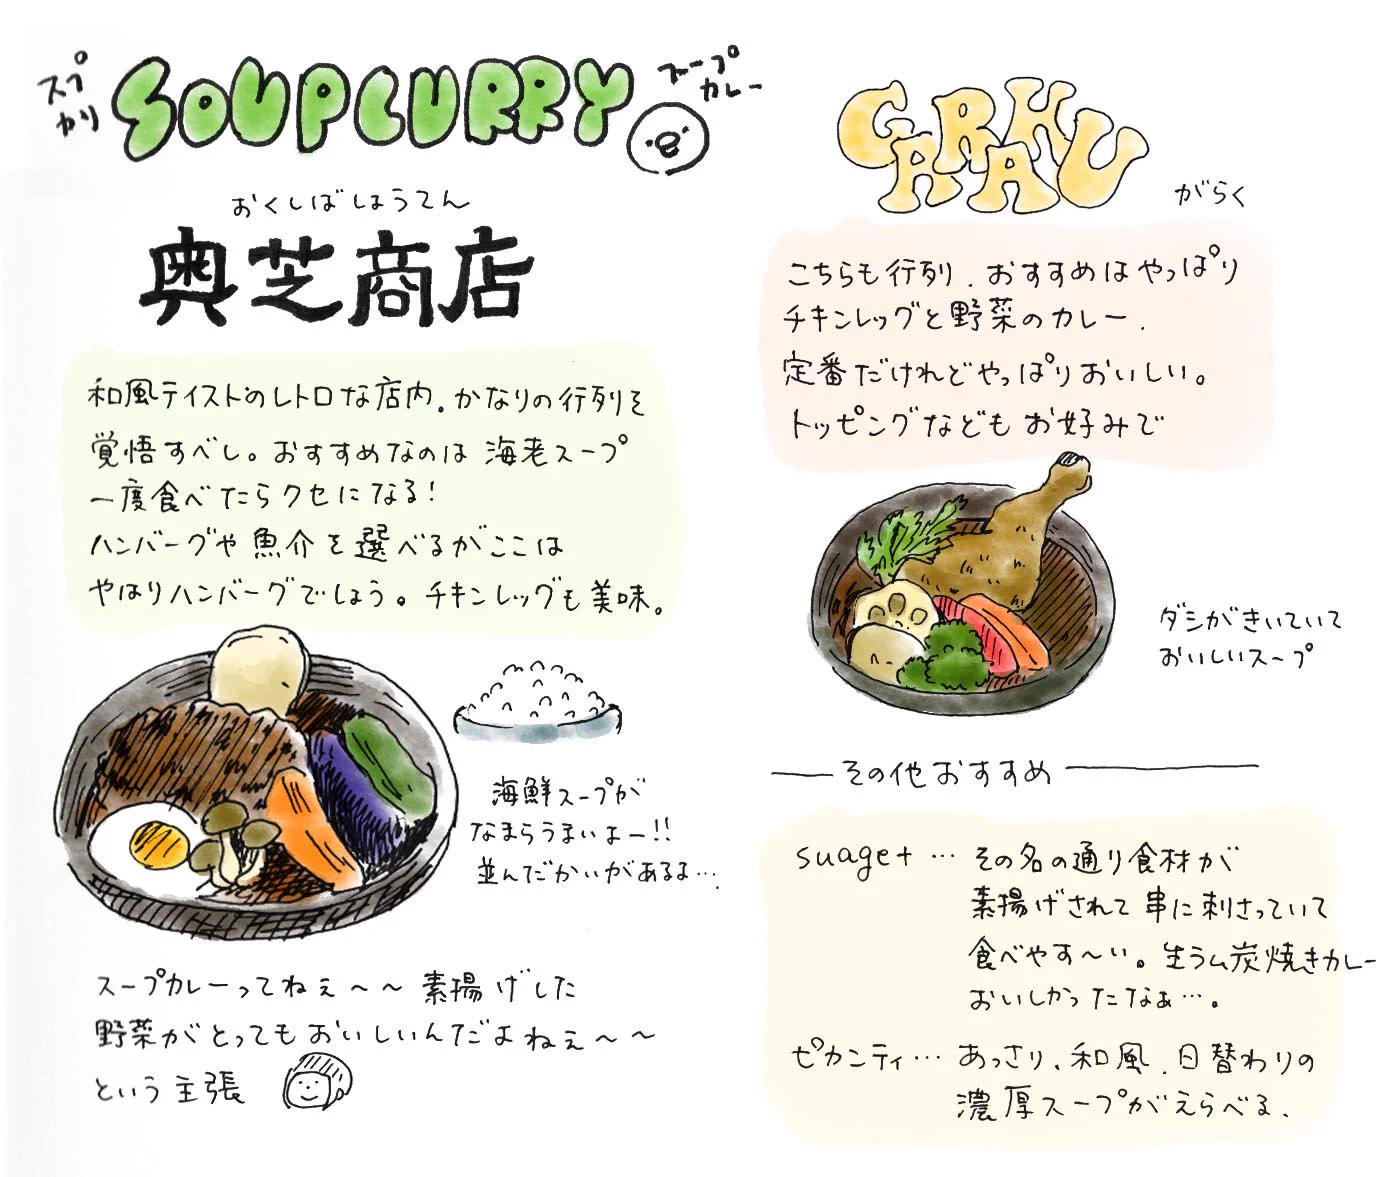 スプ
カリ
SOUPCURRY
スープ
カレー
おくしばしょうてん
奥芝商店
和風テイストのレトロな店内。かなりの行列を
覚悟すべし。おすすめなのは 海老スープ
一度食べたらクセになる!
ハンバーグや魚介を選べるがここは
やはりハンバーグでしょう。チキンレッグも美味。
海鮮スープが
なまらうまいよー!!
並んだかいがあるよ…
スープカレーってねぇ〜〜素揚げした
野菜がとってもおいしいんだよねぇ〜〜
という主張
GARAKU
がらく
こちらも行列、おすすめはやっぱり
チキンレッグと野菜のカレー、
定番だけれどやっぱりおいしい。
トッピングなどもお好みで
ダシがきいていて
おいしいスープ
その他おすすめ
suage+ … その名の通り食材が
素揚げされて串に刺さっていて
食べやす〜い。生ラム炭焼きカレー
おいしかったなぁ…。
ピカンティ… あっさり、和風、日替わりの
濃厚スープがえらべる、